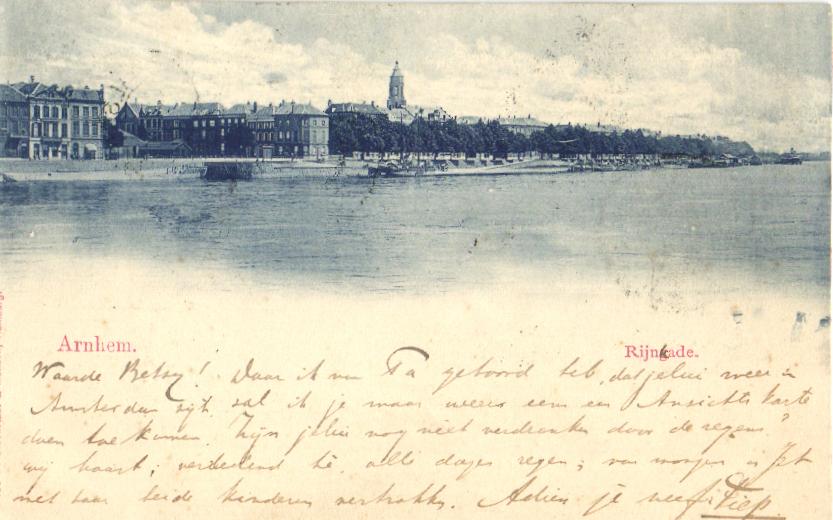 Arnhem.
Rijnkade.
Waarde Betsy! Daar ik van Ta gehoord heb, dat jelui weer in
Amsterdam zijt, zal ik je maar weer eens een Ansichtskarte
doen toekomen. Zijn jelui nog niet verdronken door de regens?
wij haast; verdeelend hè, alle dagen regen; van morgen is Jet
met haar beide kinderen vertrokken. Adieu je neef Tiep.